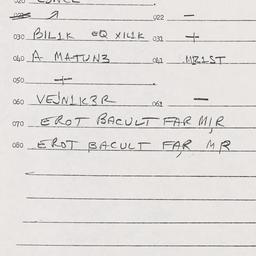 020
022 —
030 BIL1K EQ XIL1K 031 +
040 A MATUN3 041 MB1ST
050 +
060 VEJN1K3R 061 —
070 EROT BACULT FAR MIR
080 EROT BACULT FAR MR